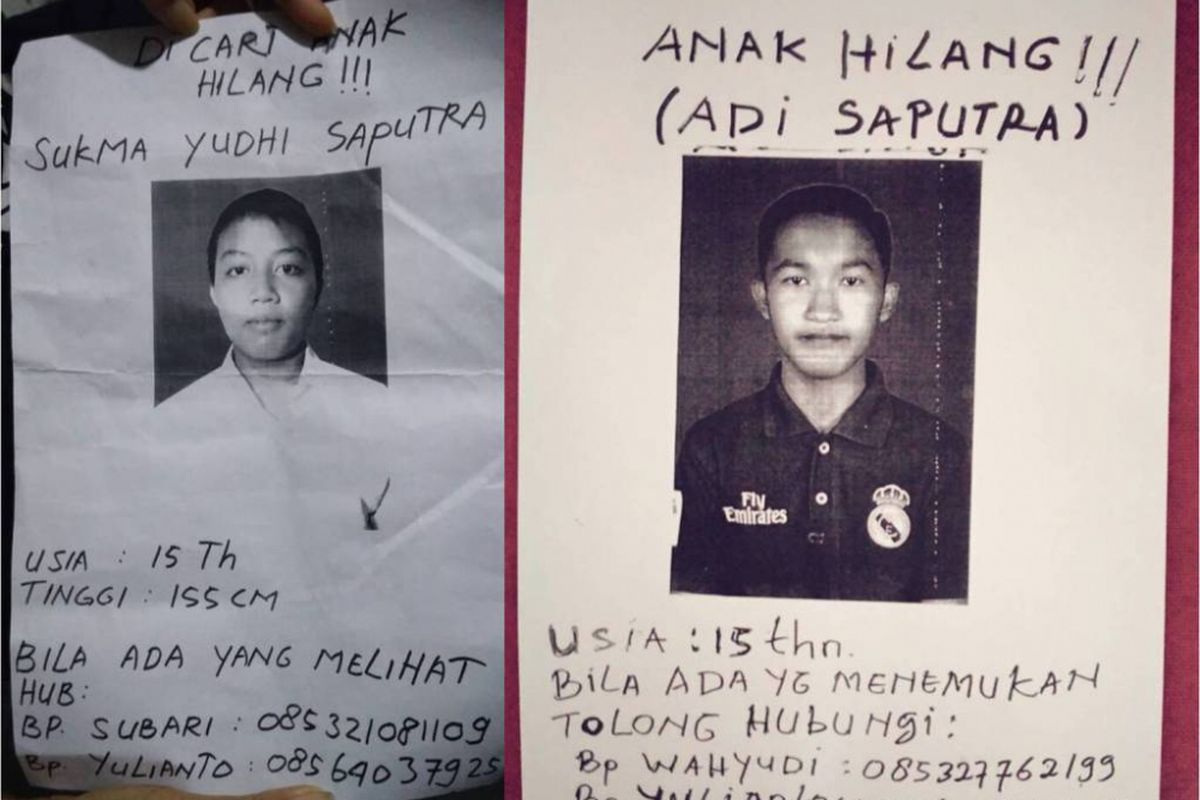 DI CARI ANAK
HILANG !!!
SUKMA YUDHI SAPUTRA
USIA : 15 Th
TINGGI : 155 CM
BILA ADA YANG MELIHAT
HUB :
BP. SUBARI : 085321081109
Bp. YULIANTO : 08564037925
ANAK HILANG !!!
(ADI SAPUTRA)
Fly
Emirates
USIA : 15 thn.
BILA ADA YG MENEMUKAN
TOLONG HUBUNGI :
Bp WAHYUDI : 085327762199